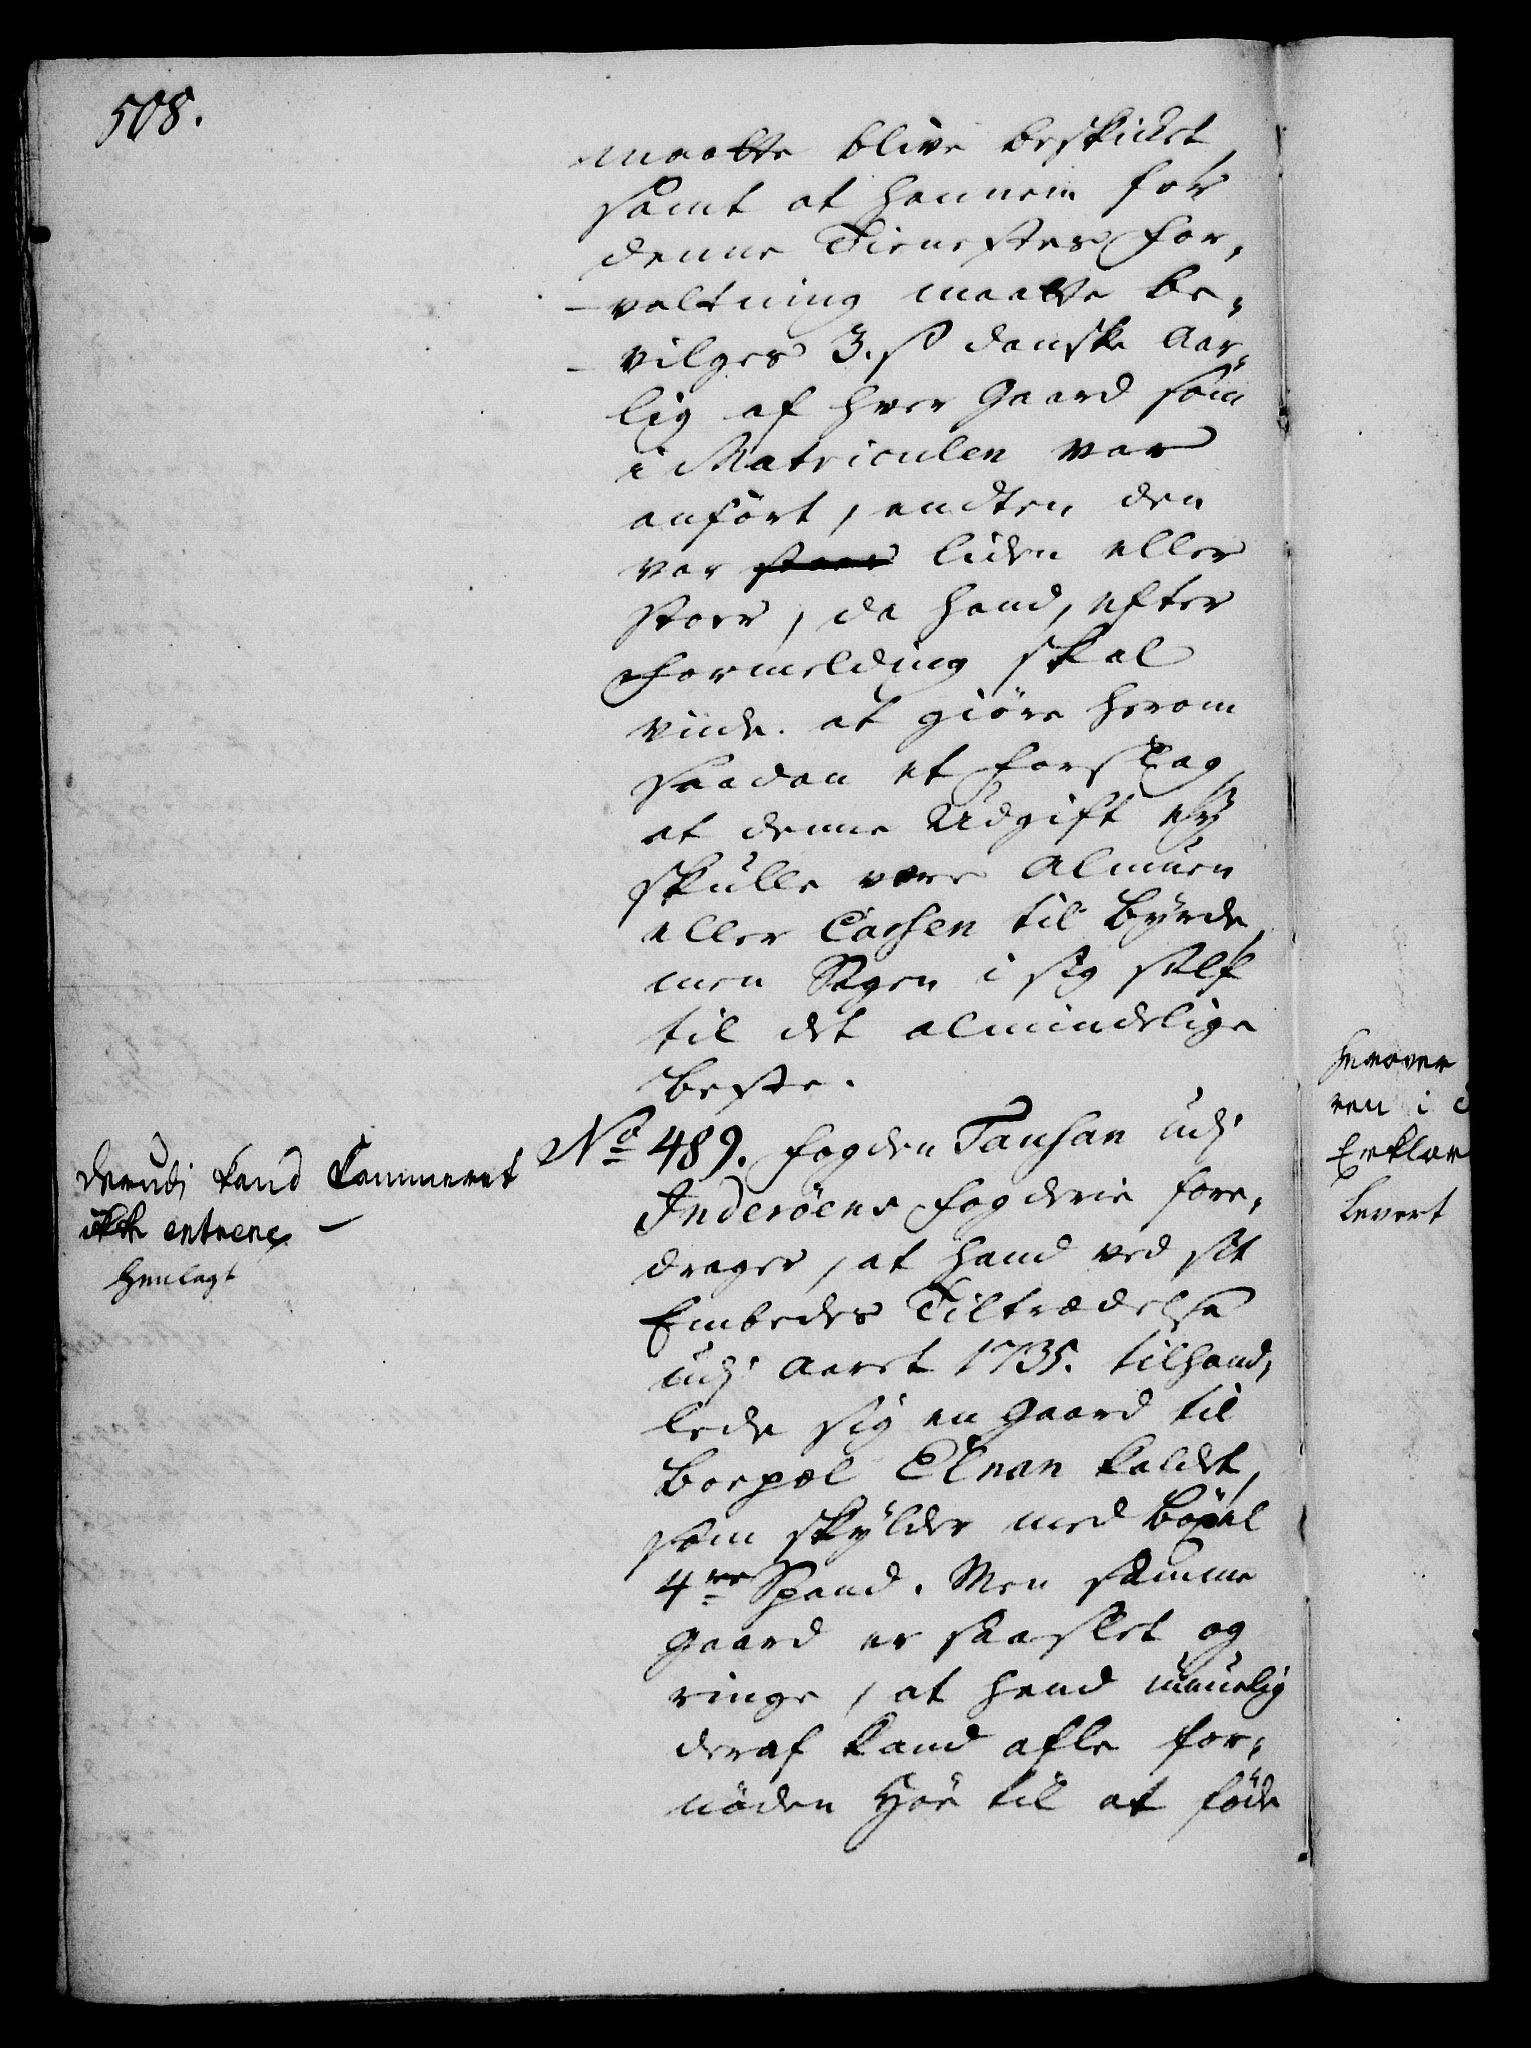 508.
maatte blive beskicket,
samt at hannem for
denne Tienestes for-
valtning maatte be-
vilges 3. s danske aar-
lig af hver Gaard som
i Matriculen var
anført, endten den
var staar liden eller
stoer, da hand, efter
formelding skal
viide at giøre herom
saadan et forslag,
at denne Udgift ey
skulle være Almuen
eller Cassen til byrde,
men Sagen i sig self
til det almindelige
beste.
No 489. fogden Taushan udj
Inderøens fogderie fore-
drager, at hand ved sit
Embedes Tiltrædelse
udj Aaret 1735. tilhand-
lede sig en Gaard til
boepæl Elnan kaldet,
som skylder med bøxel
4re Spand. Men samme
Gaard er saa slet og
ringe, at hand umuelig
deraf kand afle for-
nøden Høe til at føde
Derudj kand Cammeret
ikke entrere. –
Henlagt
Herover
ren i
Erklær
Levert